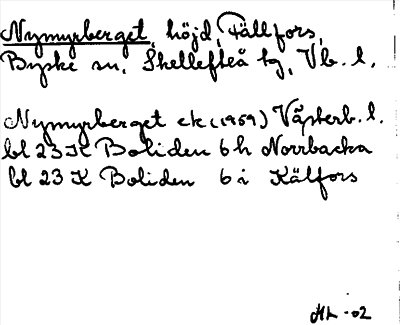 Nymyrberget, höjd, Fällfors,
Byske sn, Skellefteå tg, Vb. l.
Nymyrberget ek (1959) Västerb. l.
bl 23 K Boliden 6 h Norrbacka
bl 23 K Boliden 6 i Källfors
-02